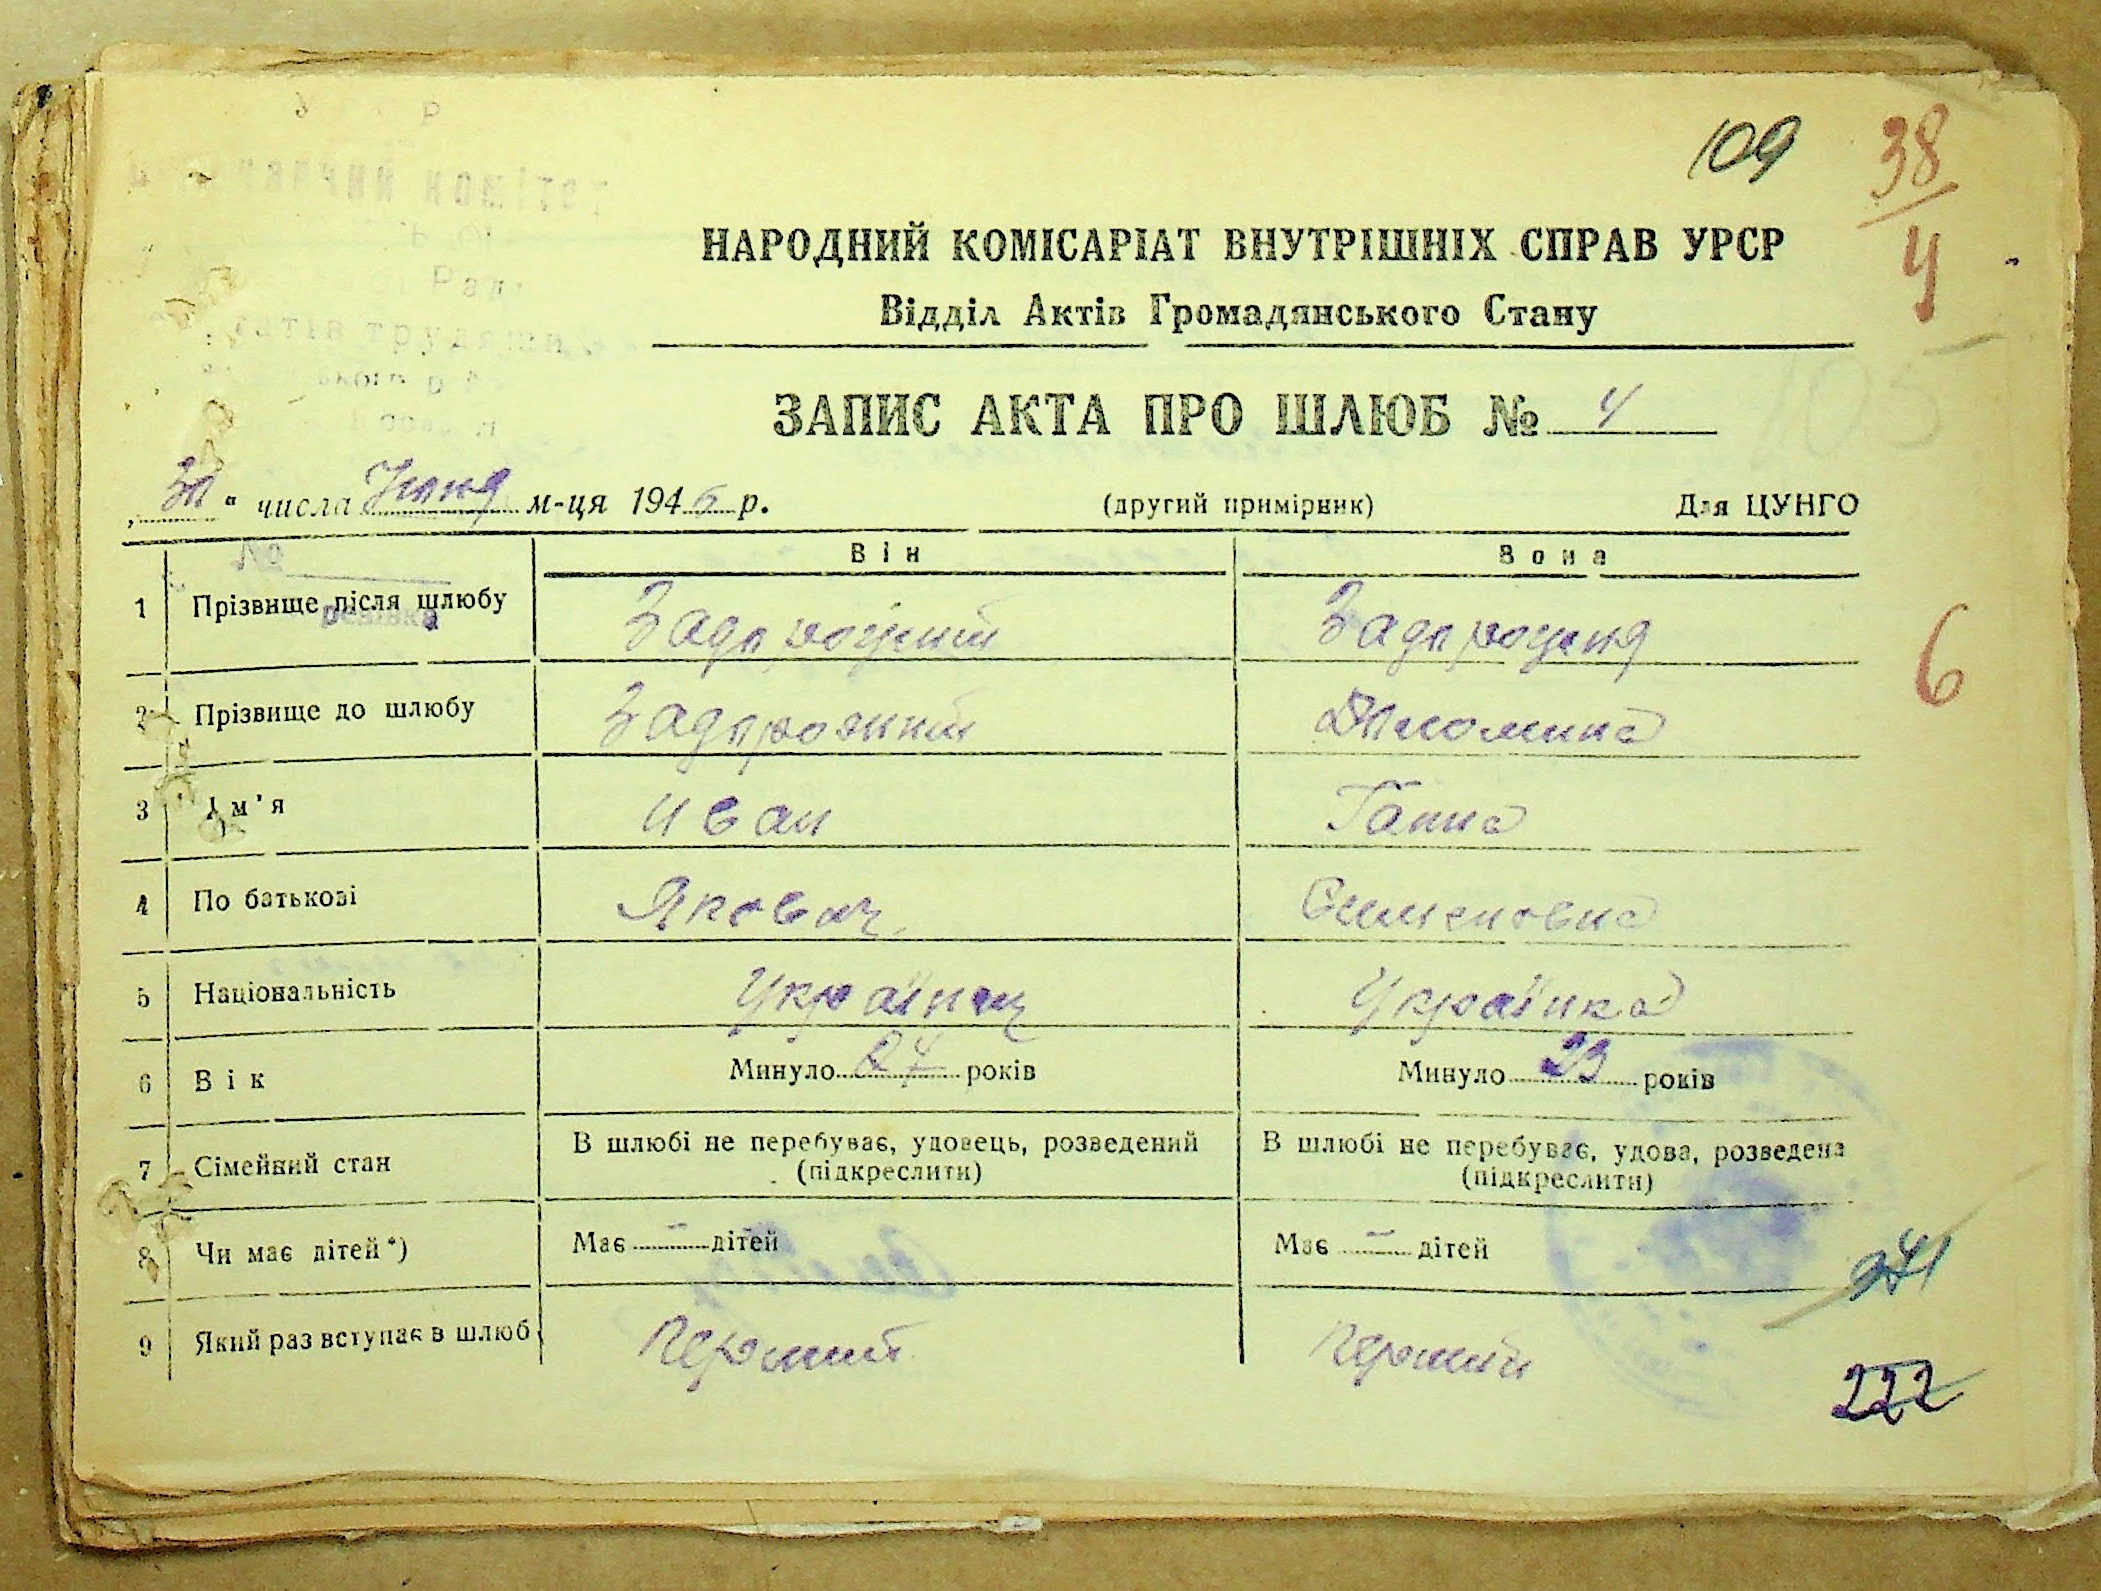 109
38
4
НАРОДНИЙ КОМІСАРІАТ ВНУТРІШНІХ СПРАВ УРСР
Відділ Актів Громадянського Стану
ЗАПИС АКТА ПРО ШЛЮБ № 4
„30" числа Июня м-ця 1946 р. (другий примірник) Для ЦУНГО
Він Вона
1 Прізвище після шлюбу
6
2 Прізвище до шлюбу
3 Ім'я Иван Ганна
4 По батькові Якович Семеновна
5 Національність Українец Українка
6 Вік Минуло 27 років Минуло 23 років
7 Сімейний стан В шлюбі не перебуває, удовець, розведений (підкреслити) В шлюбі не перебуває, удова, розведена (підкреслити)
8 Чи має дітей*) Має — дітей Має — дітей
241
9 Який раз вступає в шлюб Первий Первий
222